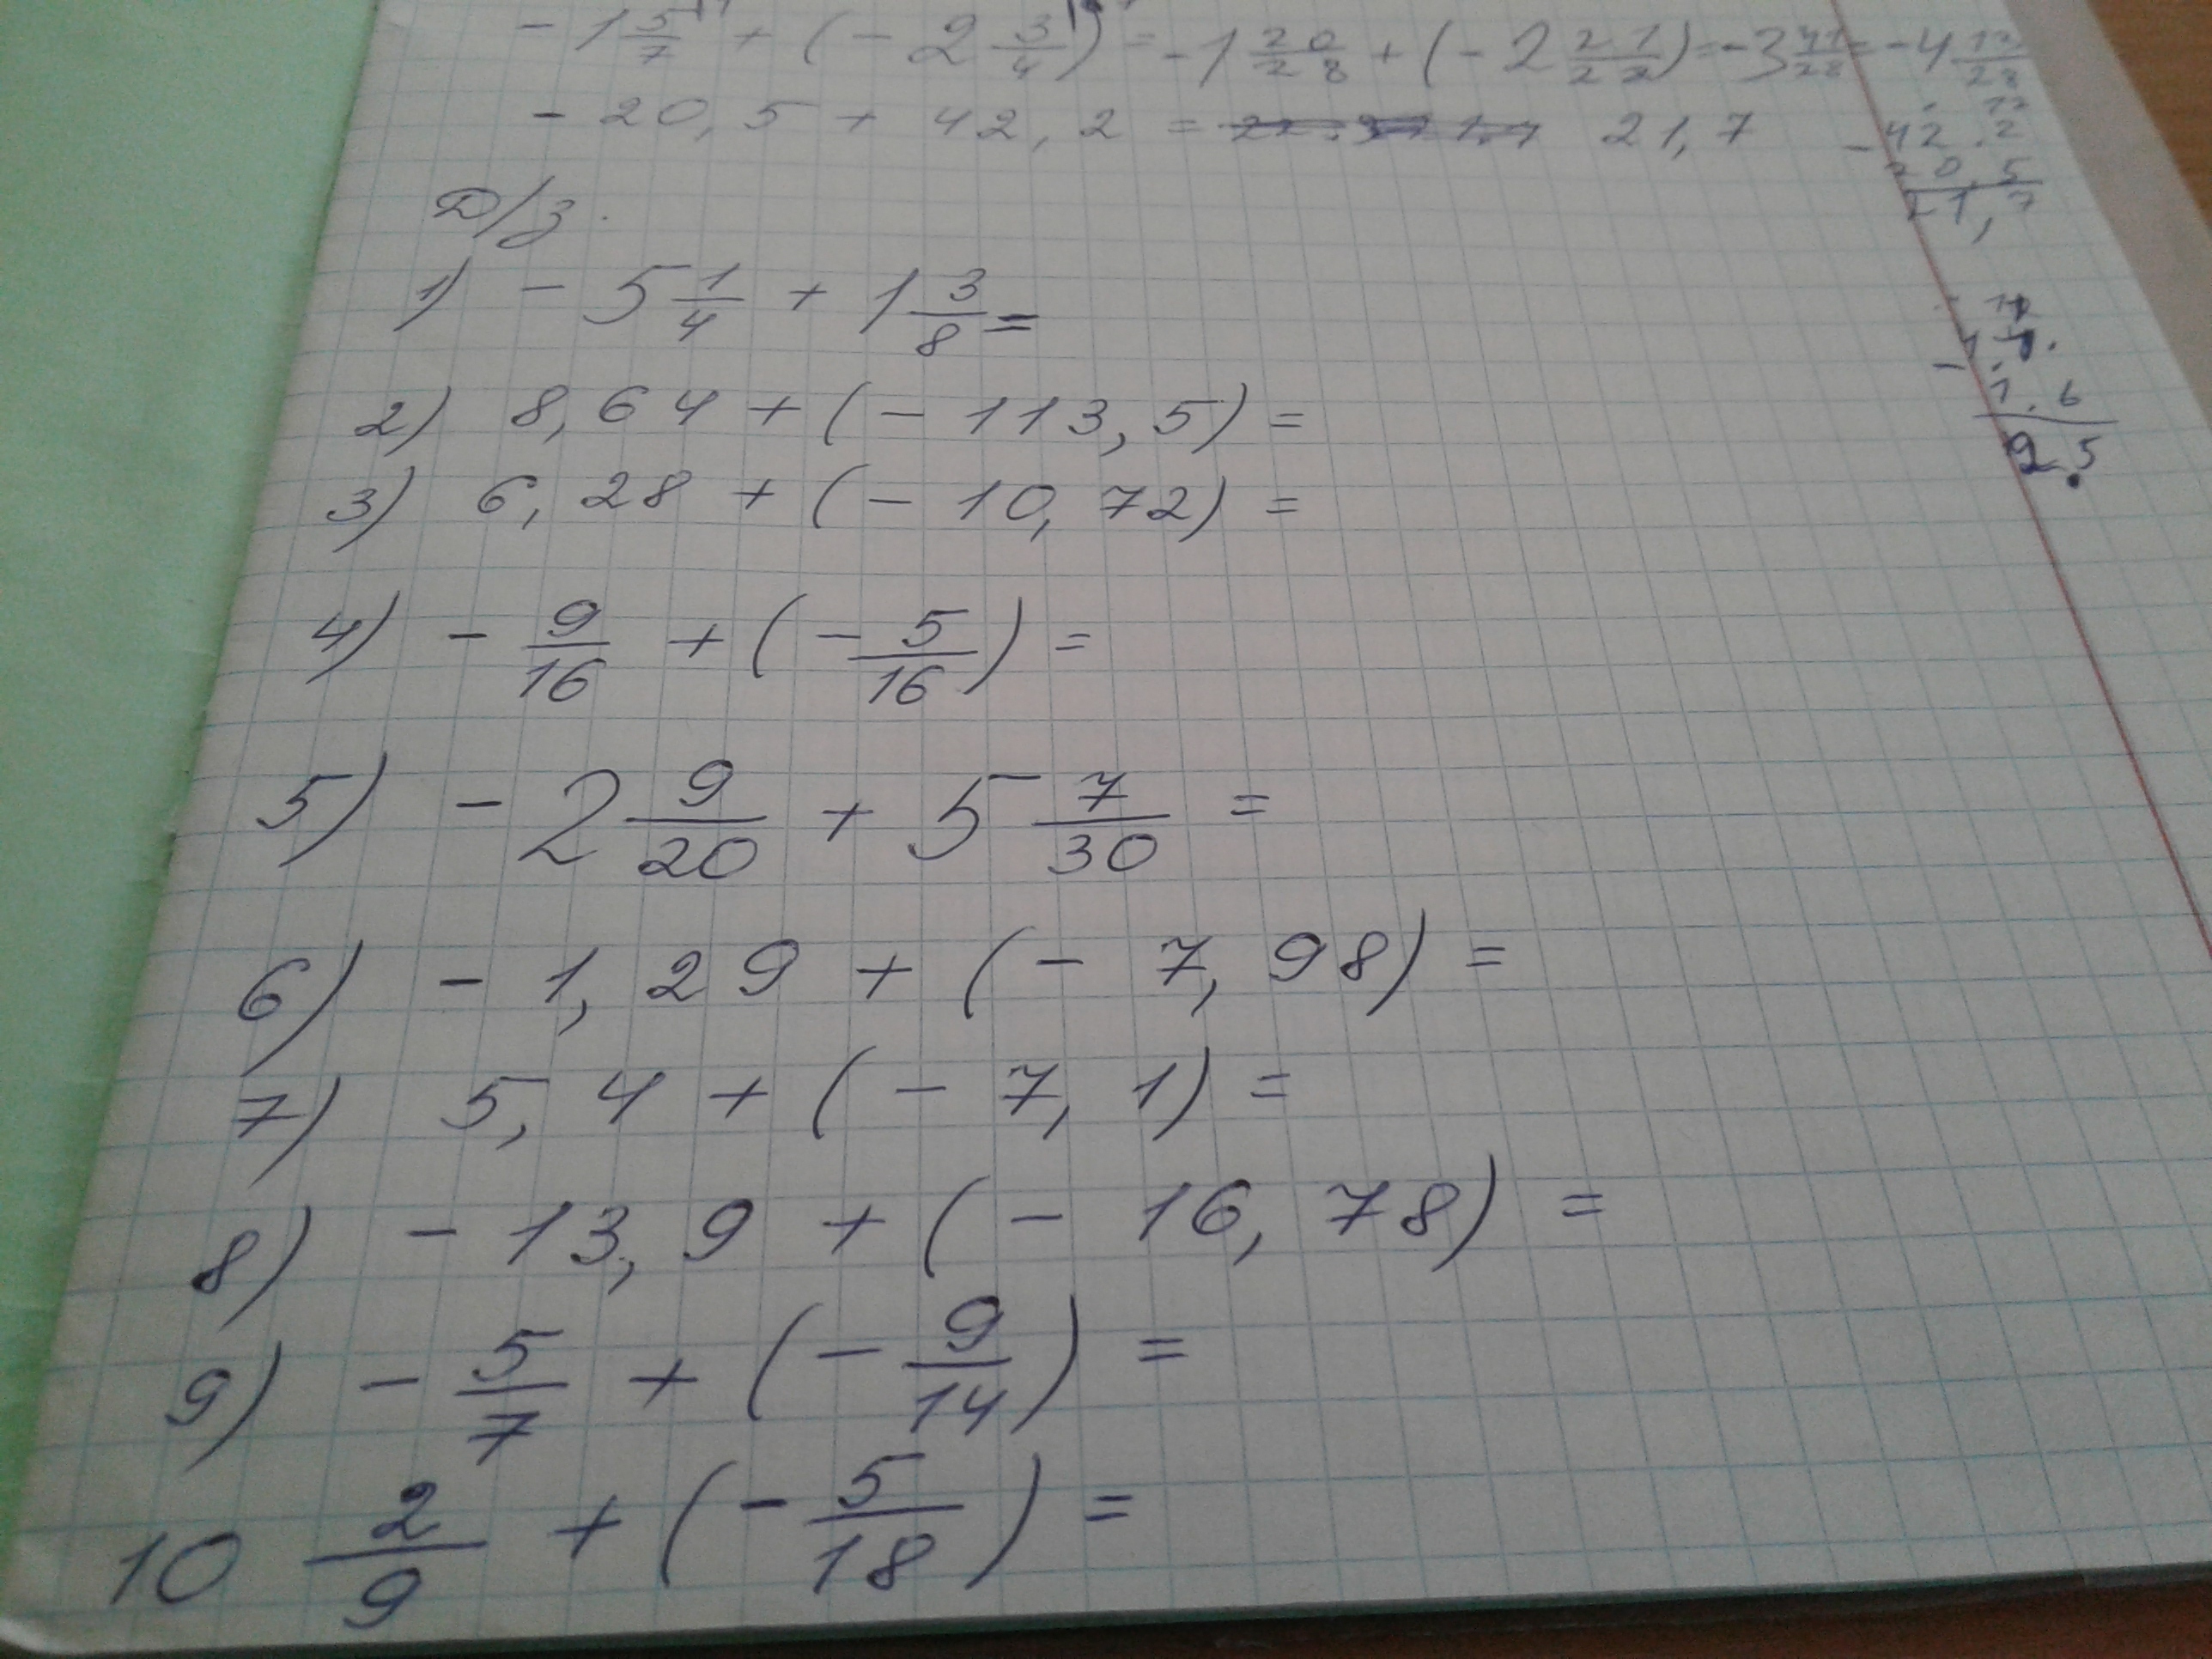 - 1 5/7 + (- 2 3/4) = - 1 20/28 + (- 2 21/28) = - 3 41/28 = - 4 13/28
- 20,5 + 42,2 = 21,7
Д/з.
1) - 5 1/4 + 1 3/8 =
2) 8,64 + (- 113,5) =
3) 6,28 + (- 10,72) =
4) - 9/16 + (- 5/16) =
5) - 2 9/20 + 5 7/30 =
6) - 1,29 + (- 7,98) =
7) 5,4 + (- 7,1) =
8) - 13,9 + (- 16,78) =
9) - 5/7 + (- 9/14) =
10 2/9 + (- 5/18) =
- 42.2
20.5
21,7
1.6
9.5